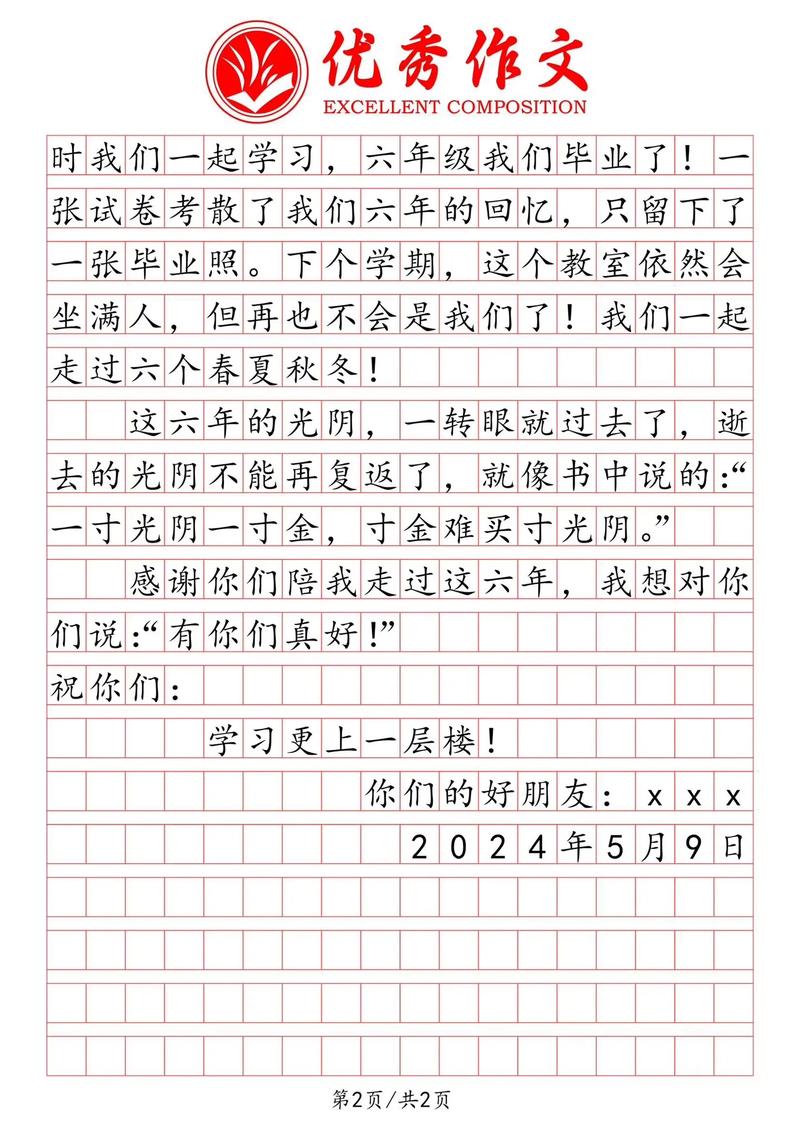 优秀作文
EXCELLENT COMPOSITION
时我们一起学习，六年级我们毕业了！一
张试卷考散了我们六年的回忆，只留下了
一张毕业照。下个学期，这个教室依然会
坐满人，但再也不会是我们了！我们一起
走过六个春夏秋冬！
这六年的光阴，一转眼就过去了，逝
去的光阴不能再复返了，就像书中说的：“
一寸光阴一寸金，寸金难买寸光阴。”
感谢你们陪我走过这六年，我想对你
们说：“有你们真好！”
祝你们：
学习更上一层楼！
你们的好朋友：xxx
2024年5月9日
第2页/共2页